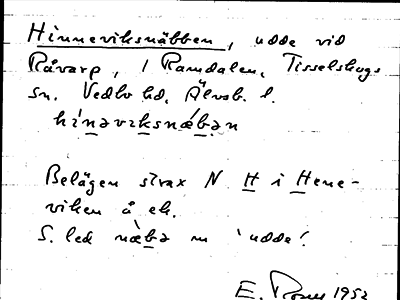 Hinneviksnäbben, udde vid
Råvarp, i Ramdalen, Tisselskogs
sn. Vedbo hd, Älvsb. l.
hìnəviksnæ̀bən
Belägen strax N H i Hene-
viken å ek.
S. led næ̀bə m 'udde'.
E. 1952